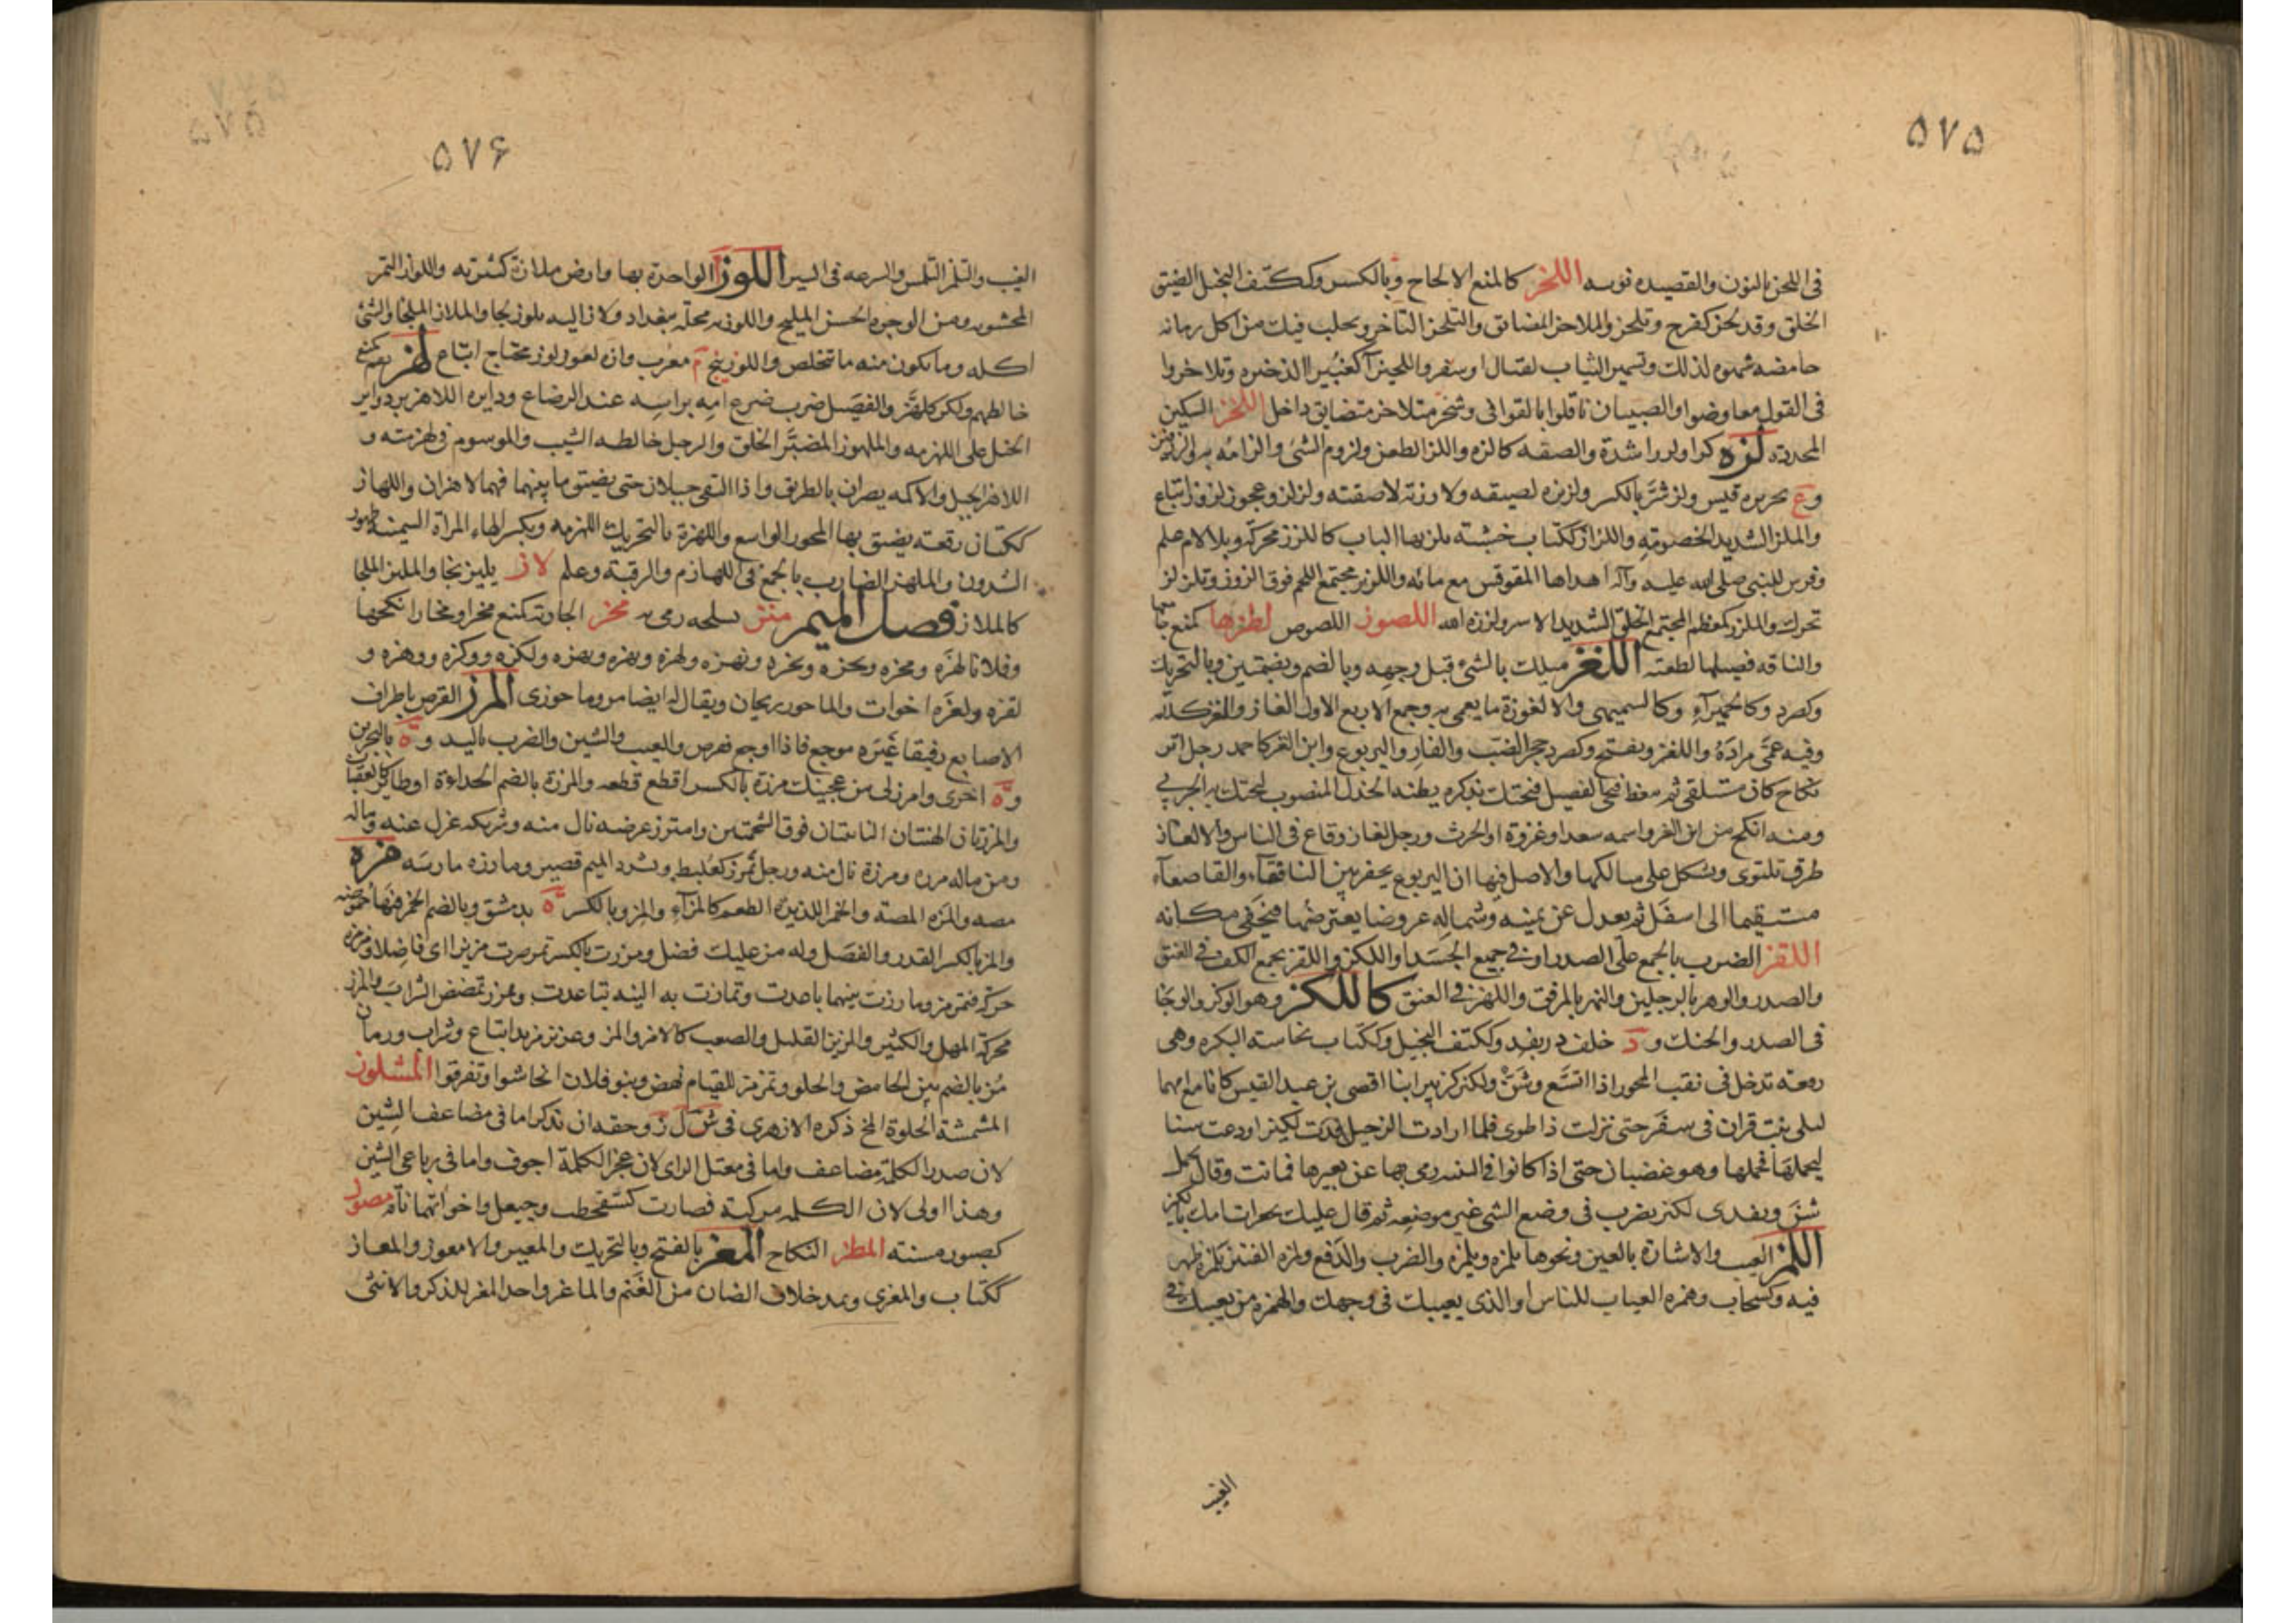 ۵۷۵
فى اللجن بالنون والقصيده نونيه اللحز كالمنع الالحاح وبالكسر وككتف البخيل الضيق
الخلق وقد لحز كفرح وتلحز والملاحز المضائق والتلحز التأخر وتحلب فيك من اكل رمانه
حامضه شهوه لذلك وتشمير الثياب لقتال او سفر واللحيزآ كغبيرا الذخيره وتلاحزوا
فى القول تعاوضوا والصبيان ناقلوا بالقوافى وشجر متلاحز متضايق داخل اللخز السكين
المحدده لزه لزا ولززا شدة والصقه كالزه واللز الطعن ولزوم الشئ والزامه به
وع بجزيره قيس ولز شرّ بالكسر ولزيزه لصيقه ولاززته لاصقته ولزلز وعجوز لزوز اتباع
والملز الشديد الخصومة واللزاز ككتاب خشبة يلز بها الباب كاللزز محركة وبلا لام علم
وفرس للنبى صلى الله عليه وآله اهداها المقوقس مع ماريه واللزيز مجتمع اللحم فوق الزور وتلزلز
تحرك والملزز كمعظم المجتمع الخلق الشديد الاسر ولززه الله اللصوز اللصوص لطزها كمنع
والناقه فصيلها لطعته اللغز ميلك بالشئ قبل وجهه وبالضم وبضمتين وبالتحريك
وكصرد وكالحميرآء وكالسميهى والالغوزة ما يعمى به وجمع الاربع الاول الغاز والغز كلامه
وفيه عمّى مرادَهُ واللغز ويفتح وكصرد جحر الضب والفار واليربوع وابن الغز كاحمد رجل اير
نكاح كان يستلقى ثم ينعظ فيجئ الفصيل فيحتك بذكره يظنه الجذل المنصوب لتحتك به الجربى
ومنه انكح من ابن الغز واسمه سعد او عروة او الحرث ورجل لغاز وقاع فى الناس والالغاز
طرق تلتوى وتشكل على سالكها والاصل فيها ان اليربوع يحفر بين النافقآء والقاصعآء
مستقيما الى اسفل ثم يعدل عن يمينه وشماله عروضا يعترضها فيخفى مكانه
اللقز الضرب بالجمع على الصدر او فى جميع الجسد او اللكز واللقز بجمع الكف فى العنق
والصدر والوهز بالرجلين والنهز بالمرفق واللهز فى العنق كاللكز وهو الوكز والوجا
فى الصدر والحنك ود خلف دربند وككتف البخيل وككتاب نخاسته البكره وهى
رقعه تدخل فى ثقب المحور اذا اتسع وشن ولكيز كزبير ابنا افصى بن عبد القيس كانا مع امهما
ليلى بنت قران فى سفر حتى نزلت ذا طوى فلما ارادت الرحيل فدت لكيزا ودعت شنا
ليحملها فحملها وهو غضبان حتى اذا كانوا فى الثنيه رمى بها عن بعيرها فماتت وقال يحمل
شن ويفدى لكيز يضرب فى وضع الشئ غير موضعه ثم قال عليك بجعرات امك يا لكيز
اللمز العيب والاشارة بالعين ونحوها يلمزه ويلمزه والضرب والدفع ولمزه القتير يلمزه ظهر
فيه وكسحاب وهمزه العياب للناس او الذى يعيبك فى وجهك والهمزه من يعيبك فى
الغيب
۵۷۶
الغيب والتلمز التلمس والسرعه فى السير اللوز الواحدة بها وارض ملازة كثيرته واللوز التمر
المحشو به ومن الوجوه الحسن المليح واللوزيه محلّه ببغداد ولاز اليه يلوز لجا والملاز الملجا والشئ
اكله وما يكون منه ما تخلص واللوزينج م معرب وانه لعوز لوز محتاج اتباع لهزهم كمنع
خالطهم ولكز كلهّز والفصيل ضرب ضرع امه براسه عند الرضاع ودايره اللاهز من دواير
الخيل على اللهزمه والملهوز المضبر الخلق والرجل خالطه الشيب والموسوم فى لهزمته و
اللاهز الجبل والاكمه يضران بالطريق واذا التقى جبلان حتى يضيق ما بينهما فهما لاهزان واللهاز
ككتاب رقعه يضيق بها المحور الواسع واللهزة بالتحريك اللهزمه وبكسر الهاء المراة السمينه ظهور
الثديين والملهز الضارب بالجمع فى اللهازم والرقبة وعلم لاز يليز لجا والملبز الملجا
كالملاز فصل الميم متز بسلحه رمى به محز الجاريه كمنع محزا ومحازا نكحها
وفلانا لهزه ومحزه وبحزه ونحزه ونهزه ولهزه وبهزه ومهزه ولكزه ووكزه ووهزه و
لقزه ولعزه اخوات والماحوز ريحان ويقال له ايضا مروماحوزى المرز القرص باطراف
الاصابع رفيقا غيره موجع فاذا اوجع فقرص والعيب والشين والضرب باليد وة بالبحرين
وة اخرى وامرز لى من عجينك مرزة بالكسر اقطع قطعه والمرزة بالضم الحداءة او طاير كالعقاب
والمرزتان الهنتان الناتئتان فوق الشحمتين وامترز عرضه نال منه وشريكه عزل عنه ماله
ومن ماله مرزه ومرزة نال منه ورجل تمرز كعلبط وتشدد الميم قصير ومارزه مارسه مزه
مصه والمزه المصة والخمر اللذيذة الطعم كالمزآء والمز وبالكسر ة بدمشق وبالضم الخمر فيها حموضه
والمز بالكسر القدر والفضل وله مز عليك فضل ومززت بالكسر تمز صرت مزيزا اى فاضلا ومزمزه
حركه فتمزمز ومازرت بينهما باعدت وتمازت به النيه تباعدت وتمزز تمصص الشراب والمزز
محركة المهل والكثير والمزيز القليل والصعب كالامز والمز وعزيز مزيز اتباع وشراب ورمان
مُز بالضم بين الحامض والحلو وتمزمز للقيام نهض وبنو فلان انحاشوا وتفرقوا المشلوز
المشمشة الحلوة المخ ذكره الازهرى فى ش ل ز وحقه ان يذكر اما فى مضاعف الشين
لان صدر الكلمة مضاعف واما فى معتل الزاى لان عجز الكلمة اجوف واما فى رباعى الشين
وهذا اولى لان الكلمه مركبة فصارت كشقحطب وحيعل واخواتهما ناقة مصوز
كصبور مسنه المطز النكاح المعز بالفتح وبالتحريك والمعيز والامعوز والمعاز
ككتاب والمعزى ويمد خلاف الضان من الغنم والماعز واحد المعز للذكر والانثى